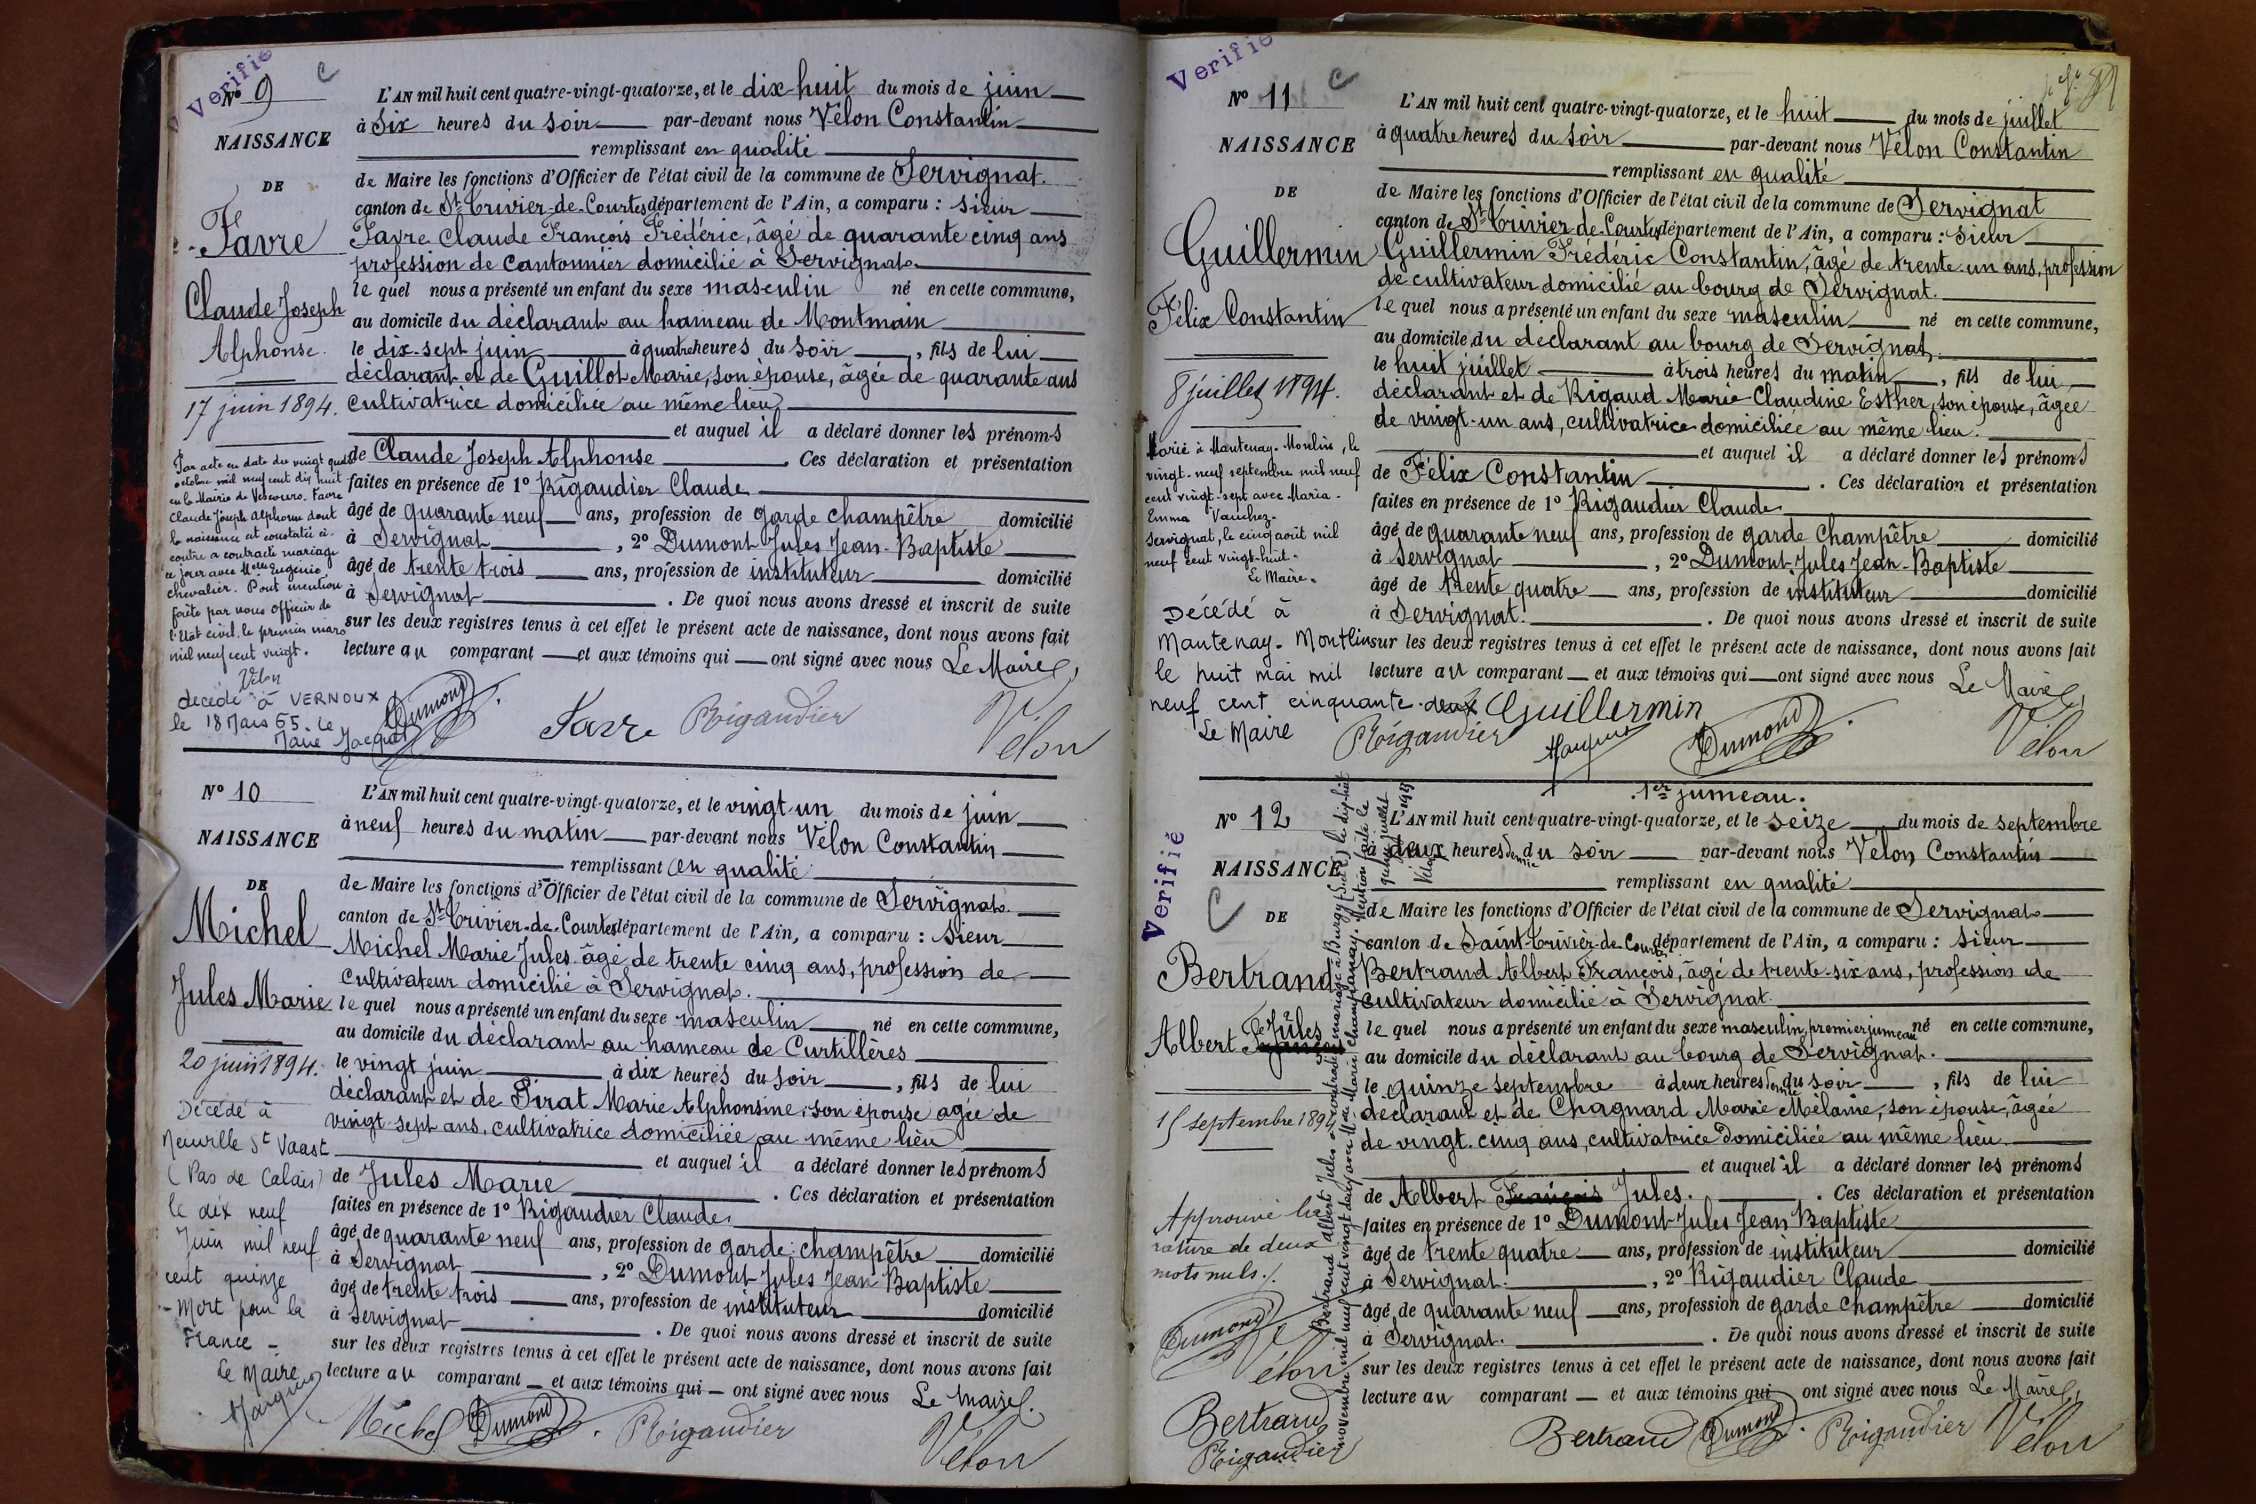 Verifié
C
Nº 9
NAISSANCE
DE
Favre
Claude Joseph
Alphonse.
17 juin 1894.
Par acte en date du vingt quatre
octobre mil neuf cent dix huit
en la Mairie de Vescours. Favre
Claude Joseph Alphonse dont
la naissance est constatée ci-
contre a contracté mariage
ce jour avec Melle Eugénie
Chevalier. Dont mention
faite par nous officier de
l'Etat civil le premier mars
mil neuf cent vingt.
Vélon
décédé à VERNOUX
le 18 Mars 65. Le
Maire
L'AN mil huit cent quatre-vingt-quatorze, et le dix huit du mois de juin
à six heures du soir par-devant nous Vélon Constantin
remplissant en qualité
de Maire les fonctions d'Officier de l'état civil de la commune de Servignat.
canton de St-Trivier-de-Courtes département de l'Ain, a comparu : sieur
Favre Claude François Frédéric, âgé de quarante cinq ans
profession de cantonnier domicilié à Servignat
le quel nous a présenté un enfant du sexe masculin né en cette commune,
au domicile du déclarant au hameau de Montmain
le dix-sept juin à quatre heures du soir , fils de lui
déclarant et de Guillot Marie, son épouse, âgée de quarante ans
cultivatrice domiciliée au même lieu
et auquel il a déclaré donner les prénoms
de Claude Joseph Alphonse . Ces déclaration et présentation
faites en présence de 1º Rigaudier Claude
âgé de quarante neuf ans, profession de garde champêtre domicilié
à Servignat , 2º Dumont Jules Jean-Baptiste
âgé de trente trois ans, profession de instituteur domicilié
à Servignat . De quoi nous avons dressé et inscrit de suite
sur les deux registres tenus à cet effet le présent acte de naissance, dont nous avons fait
lecture au comparant et aux témoins qui ont signé avec nous Le Maire,
Dumont Favre Rigaudier Vélon
Nº 10
NAISSANCE
DE
Michel
Jules Marie
20 juin 1894.
Décédé à
Neuville St Vaast
(Pas de Calais)
le dix neuf
Juin mil neuf
cent quinze
- Mort pour la
France -
Le Maire
L'AN mil huit cent quatre-vingt-quatorze, et le vingt-un du mois de juin
à neuf heures du matin par-devant nous Vélon Constantin
remplissant en qualité
de Maire les fonctions d'Officier de l'état civil de la commune de Servignat.
canton de St-Trivier-de-Courtes département de l'Ain, a comparu : sieur
Michel Marie Jules âgé de trente cinq ans, profession de
cultivateur domicilié à Servignat.
le quel nous a présenté un enfant du sexe masculin né en cette commune,
au domicile du déclarant au hameau de Curtillères
le vingt juin à dix heures du soir , fils de lui
déclarant et de Pirat Marie Alphonsine, son épouse âgée de
vingt-sept ans, cultivatrice domiciliée au même lieu
et auquel il a déclaré donner les prénoms
de Jules Marie . Ces déclaration et présentation
faites en présence de 1º Rigaudier Claude
âgé de quarante neuf ans, profession de garde-champêtre domicilié
à Servignat , 2º Dumont Jules Jean Baptiste
âgé de trente trois ans, profession de instituteur domicilié
à Servignat . De quoi nous avons dressé et inscrit de suite
sur les deux registres tenus à cet effet le présent acte de naissance, dont nous avons fait
lecture au comparant et aux témoins qui ont signé avec nous Le Maire.
Michel Dumont Rigaudier Vélon
Verifié
C
Nº 11
NAISSANCE
DE
Guillermin
Félix Constantin
8 juillet 1894.
Marié à Mantenay-Montlin, le
vingt-neuf septembre mil neuf
cent vingt-sept avec Maria-
Emma Vauchez.
Servignat, le cinq août mil
neuf cent vingt-huit.
Le Maire.
Décédé à
Mantenay-Montlin
le huit mai mil
neuf cent cinquante-deux
Le Maire
L'AN mil huit cent quatre-vingt-quatorze, et le huit du mois de juillet
à quatre heures du soir par-devant nous Vélon Constantin
remplissant en qualité
de Maire les fonctions d'Officier de l'état civil de la commune de Servignat
canton de St-Trivier-de-Courtes département de l'Ain, a comparu : sieur
Guillermin Frédéric Constantin, âgé de trente-un ans, profession
de cultivateur domicilié au bourg de Servignat.
le quel nous a présenté un enfant du sexe masculin né en cette commune,
au domicile du déclarant au bourg de Servignat,
le huit juillet à trois heures du matin , fils de lui
déclarant et de Rigaud Marie Claudine Esther, son épouse, âgée
de vingt-un ans, cultivatrice domiciliée au même lieu.
et auquel il a déclaré donner les prénoms
de Félix Constantin . Ces déclaration et présentation
faites en présence de 1º Rigaudier Claude
âgé de quarante neuf ans, profession de garde champêtre domicilié
à Servignat , 2º Dumont Jules Jean-Baptiste
âgé de trente quatre ans, profession de instituteur domicilié
à Servignat. . De quoi nous avons dressé et inscrit de suite
sur les deux registres tenus à cet effet le présent acte de naissance, dont nous avons fait
lecture au comparant et aux témoins qui ont signé avec nous Le Maire,
Rigaudier Guillermin Dumont Vélon
1er jumeau.
Verifié
C
Nº 12
NAISSANCE
DE
Bertrand
Albert François Jules
15 septembre 1894
Approuvé la
rature de deux
mots nuls.
Dumont
Vélon
Bertrand
Rigaudier
L'AN mil huit cent quatre-vingt-quatorze, et le seize du mois de septembre
à deux heures demie du soir par-devant nous Vélon Constantin
remplissant en qualité
de Maire les fonctions d'Officier de l'état civil de la commune de Servignat
canton de Saint-Trivier-de-Courtes département de l'Ain, a comparu : sieur
Bertrand Albert François, âgé de trente-six ans, profession de
cultivateur domicilié à Servignat.
le quel nous a présenté un enfant du sexe masculin, premier jumeau né en cette commune,
au domicile du déclarant au bourg de Servignat.
le quinze septembre à deux heures demie du soir , fils de lui
déclarant et de Chagnard Marie Mélanie, son épouse, âgée
de vingt-cinq ans, cultivatrice domiciliée au même lieu.
et auquel il a déclaré donner les prénoms
de Albert François Jules. . Ces déclaration et présentation
faites en présence de 1º Dumont Jules Jean Baptiste
âgé de trente quatre ans, profession de instituteur domicilié
à Servignat. , 2º Rigaudier Claude
âgé de quarante neuf ans, profession de garde champêtre domicilié
à Servignat. . De quoi nous avons dressé et inscrit de suite
sur les deux registres tenus à cet effet le présent acte de naissance, dont nous avons fait
lecture au comparant et aux témoins qui ont signé avec nous Le Maire,
Bertrand Dumont Rigaudier Vélon
Bertrand Albert Jules a contracté mariage à Burgy (S.et L.) le dix-huit
novembre mil neuf cent vingt avec Melle Marie Champanay. Mention faite le
juillet
Vélon